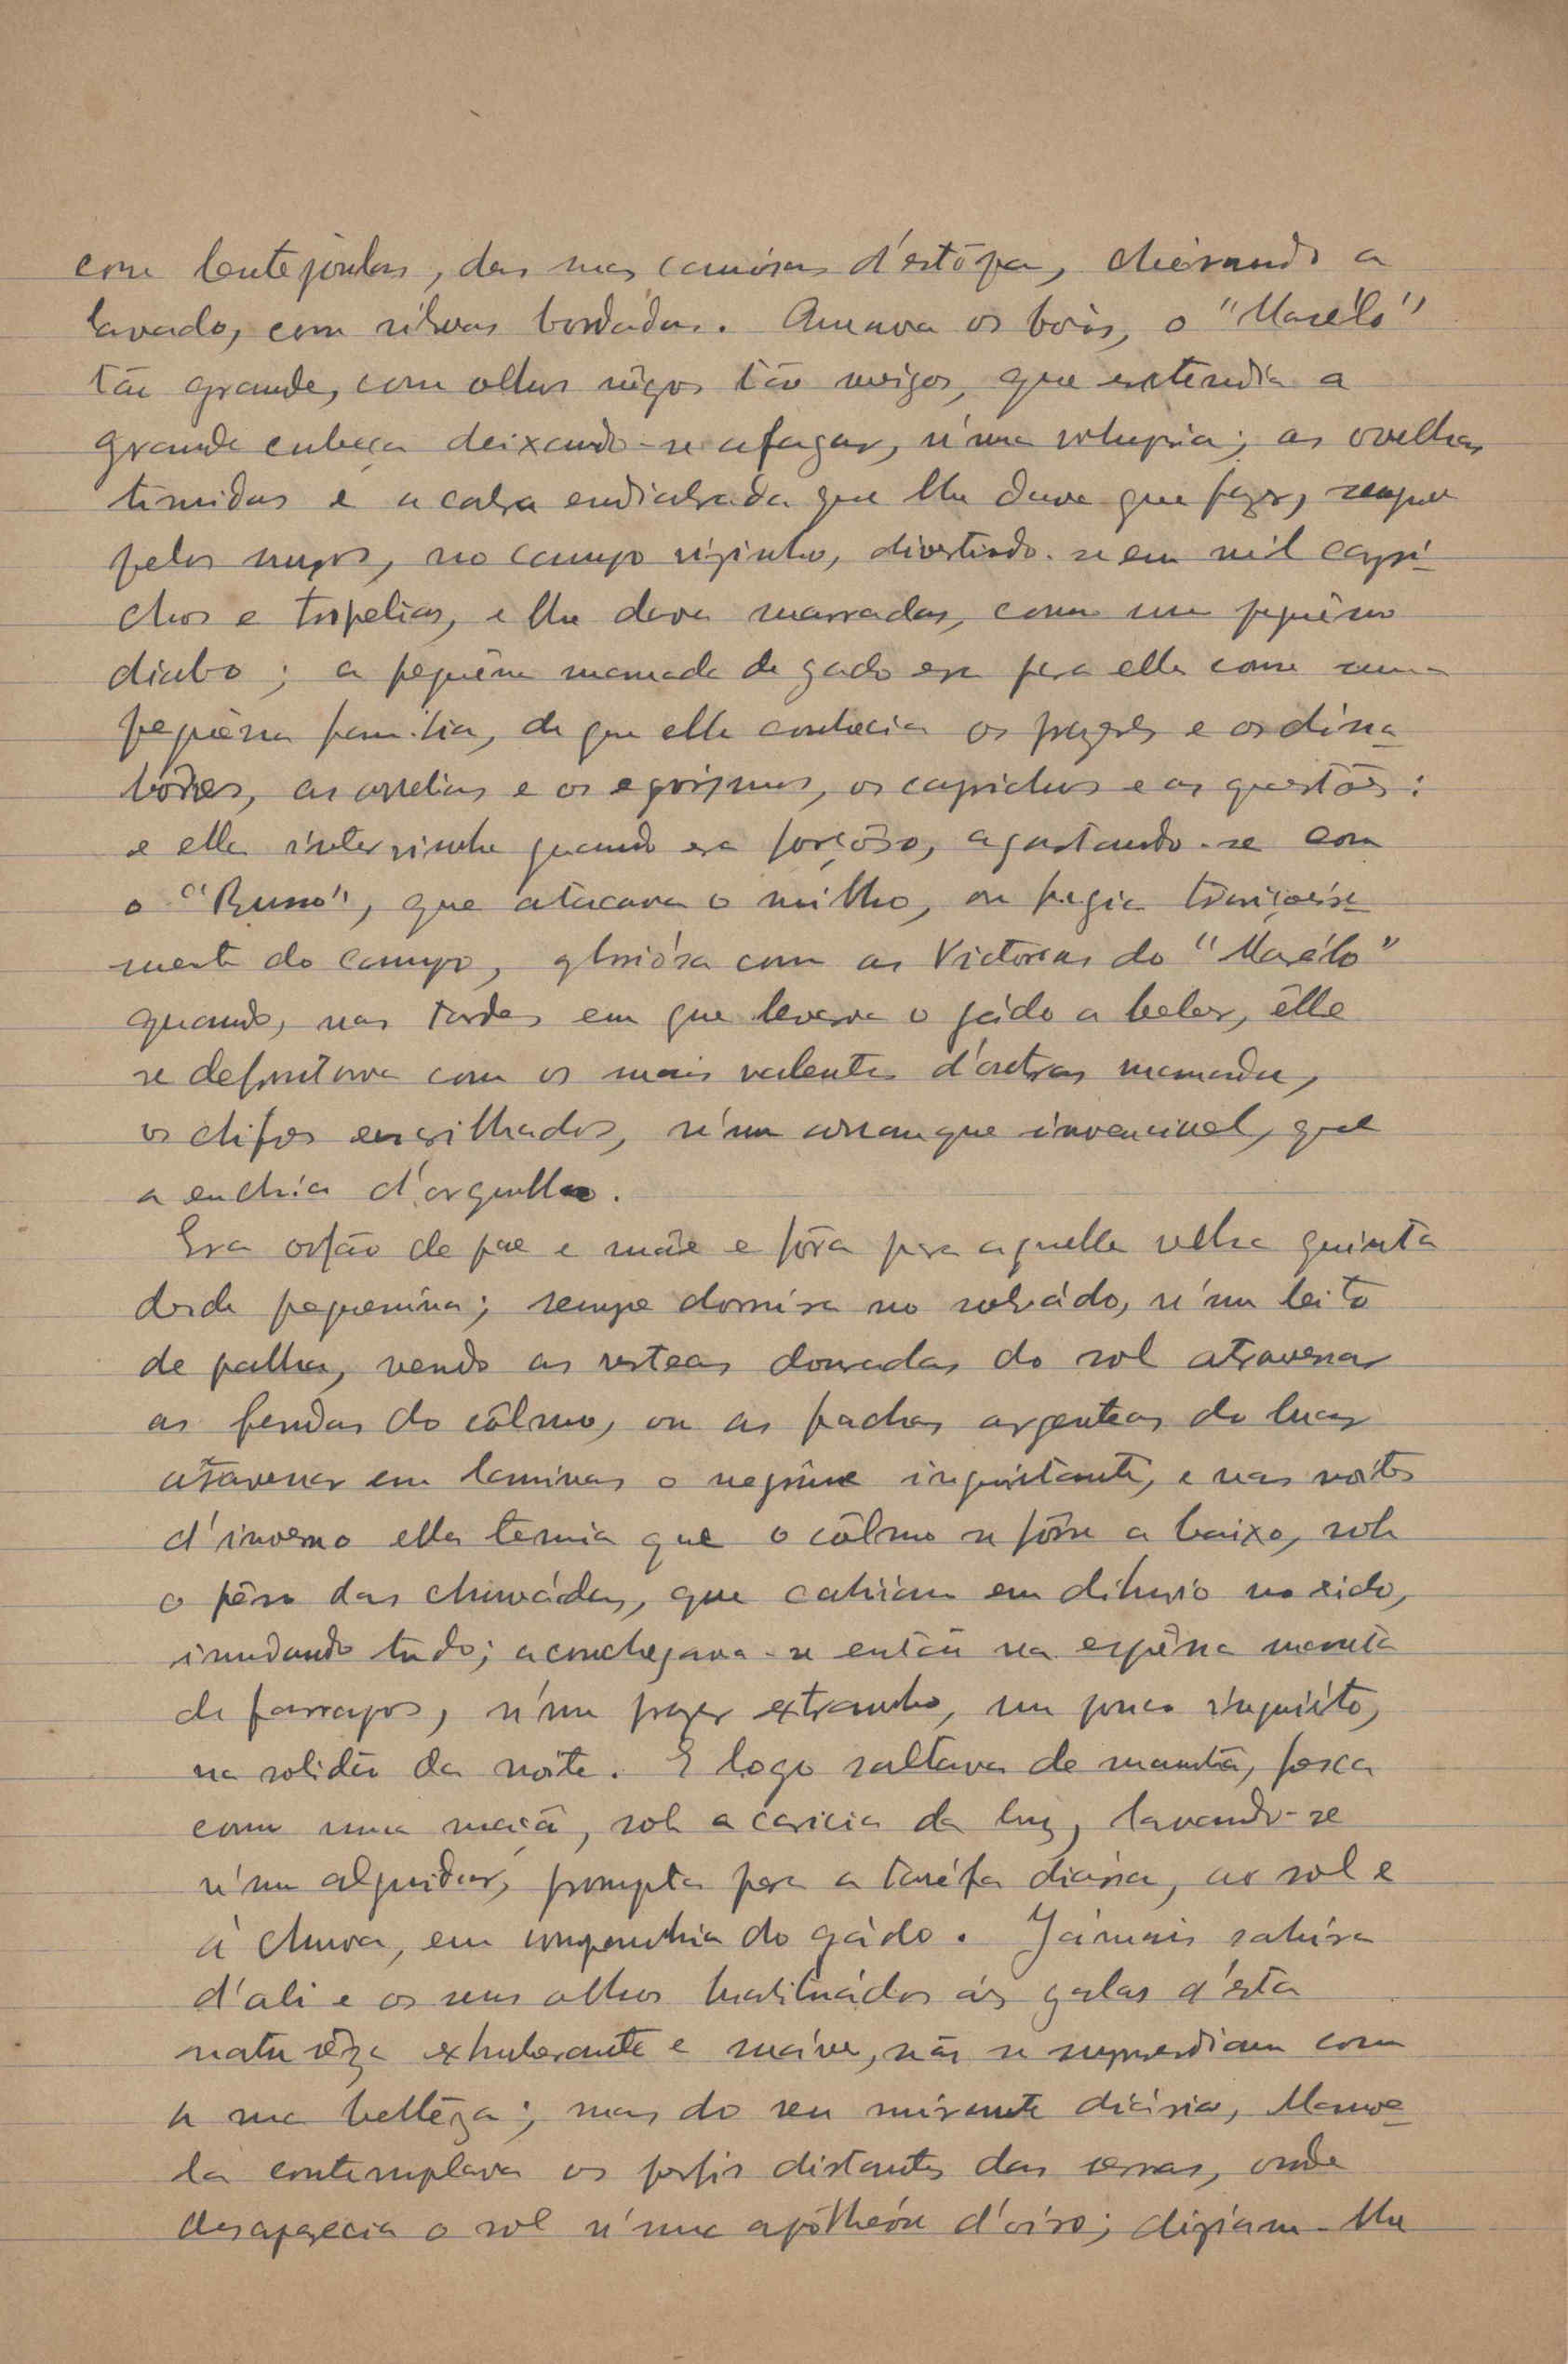 com lentejoulas, das suas camisas d'estôpa, cheirando a
lavado, com silvas bordadas. Amava os bois, o "Marélo"
tão grande, com olhos nêgros tão meigos, que extendia a
grande cabeça deixando-se afagar, n'uma volupia; as ovelhas
timidas e a cabra endiabrada que lhe dava que fazer, sempre
pelos muros, no campo visinho, divertindo-se em mil capri-
chos e tropelias, e lhe dava marradas, como um pequêno
diabo; a pequêna manada de gado era para ella como uma
pequêna familia, de que ella conhecia os prazeres e os dissa-
bôres, as  e os egoismos, os caprichos e as questões:
e ella intervinha quando era forçôso, agastando-se com
o "Russo", que atacava o milho, ou fugia traiçoeira-
mente do campo, gloriósa com as Victorias do "Marélo"
quando, nas tardes em que levava o gádo a beber, êlle
se defrontava com os mais valentes d'outras manadas,
os chifres engrilhados, n'um arranque invencivel, que
a enchia d'orgulho.
Era orfão de pae e mãe e fôra para aquella velha quinta
desde pequenina; sempre dormira no sobrádo, n'um leito
de palha, vendo as resteas douradas do sol atravessar
as fendas do côlmo, ou as fachas argenteas do luar
atravessar em laminas o negrume inquietante, e nas noites
d'inverno ella temia que o côlmo se fôsse a baixo, sob
o pêso das chuvádas, que cahiam em diluvio no eido,
inundando tudo; aconchegava-se então na espêssa manta
de farrapos, n'um prazer extranho, um pouco inquiéto,
na solidão da noite. E logo saltava de manhã, fresca
como uma maçã, sob a caricia da luz, lavando-se
n'um alguidar, prompta para a taréfa diária, ao sol e
á chuva, em companhia do gádo. Jámais sahira
d'ali e os seus olhos habituádos ás galas d'esta
naturêza exhuberante e suáve, não se surprendiam com
a sua bellêza; mas do seu mirante diário, Manoe-
la contemplava os perfis distantes das serras, onde
desaparecia o sol n'uma apôtheóse d'oiro; diziam-lhe